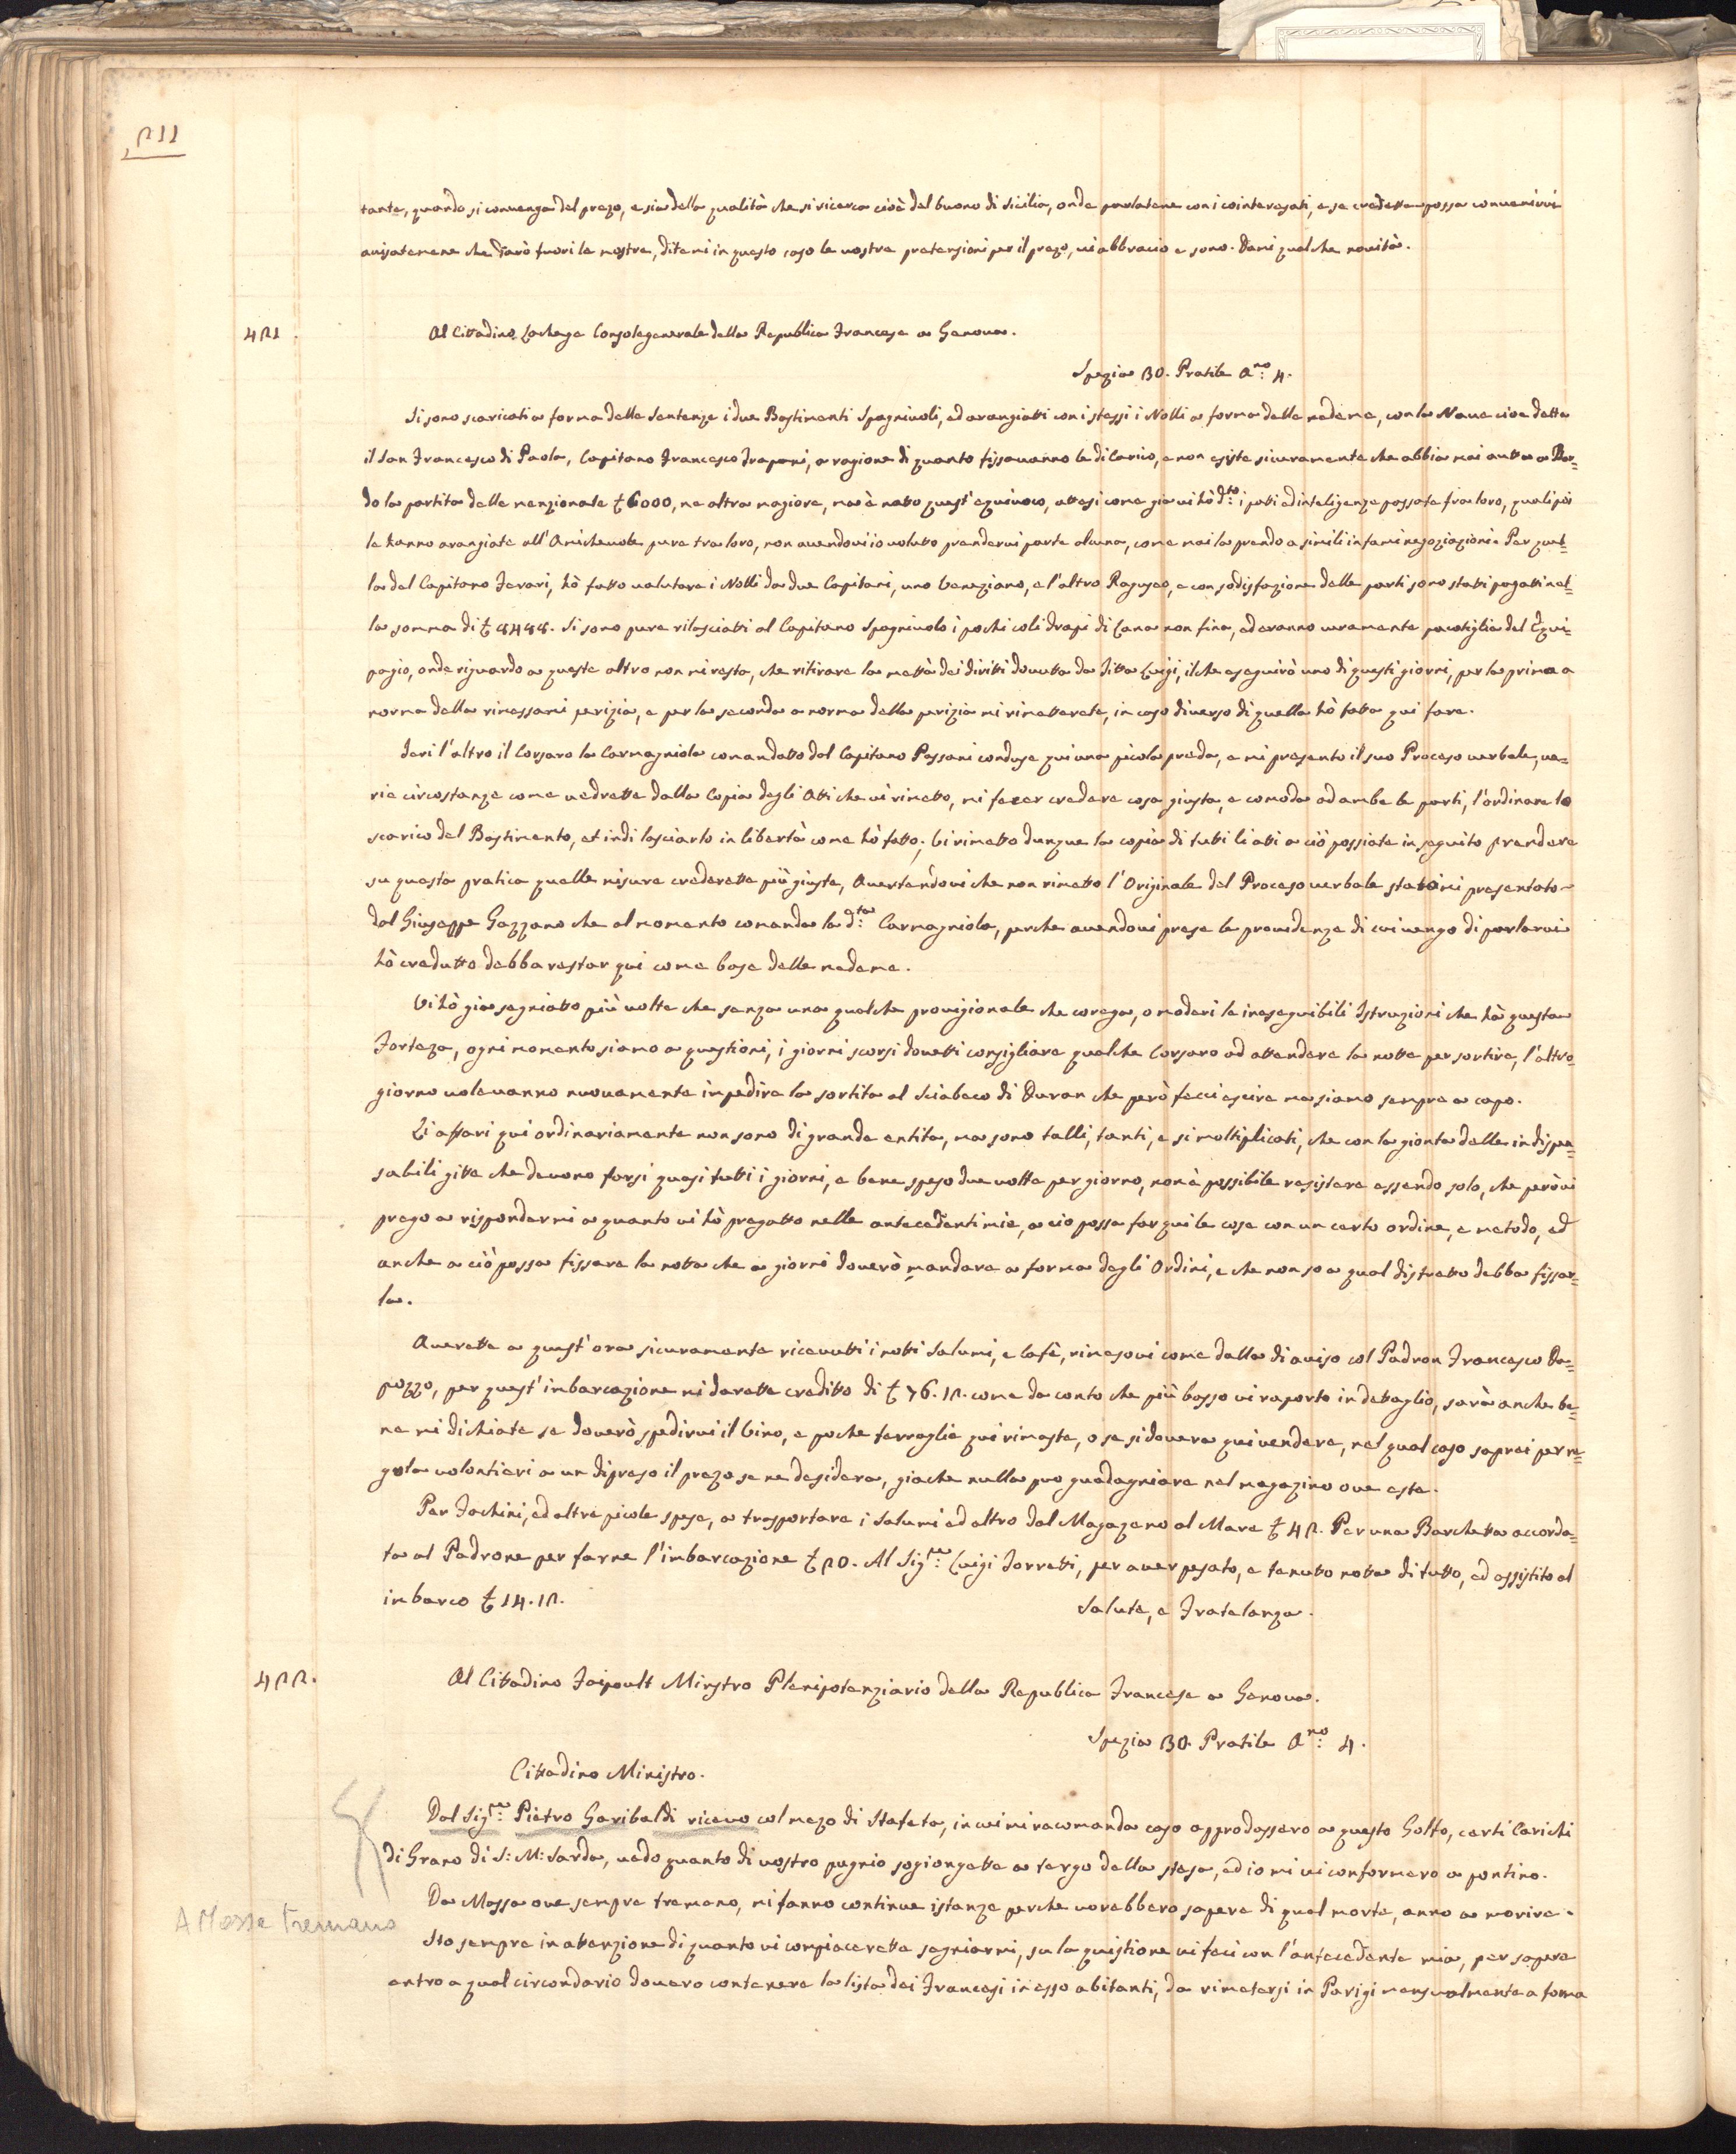 211
tante, quando si convenga del prezo, e sia della qualità che si ricerca cioè del buono di Sicilia, onde parlatene con i cointeresati, e se credette possa convenirvi
avisatemene che darò fuori le mostre, ditemi in questo caso le vostre pretensioni per il prezo, vi abbracio e sono. Dami qualche novità.
421.
Al Cittadino Lachege Consolegenerale della Republica Francese a Genova.
Spezia 30. Pratile Ano: 4.
Si sono scaricati a forma delle Sentenze i due Bastimenti Spagnivoli, ed arangiatti con i stessi i Nolli a forma delle mademe, con la Nave cioe detta
il San Francesco di Paola, Capitano Francesco Traponi, a ragione di quanto fissavanno le di Carico, e non esiste sicuramente che abbia mai autto a Bor=
do la partita delle menzionate £ 6000, ne altra magiore, ma è natto quest'equivoco, attesi come gia vi hò dto: i patti ed inteligenze passate fra loro, quali poi
le hanno arangiate all'Amichevole pure tra loro, non avendovi io volutto prendervi parte alcuna, come mai la prendo a simili infami negoziazioni. Per quel=
la del Capitano Ferari, hò fatto valutare i Nolli da due Capitani, uno Veneziano, e l'altro Raguseo, e con sodisfazione delle parti sono stati pagatti nel=
la somma di £ 8488. Si sono pure rilasciatti al Capitano Spagnivolo i pochi coli drapi di Lana non fina, ed eranno veramente pacotiglia del Equi=
pagio, onde riguardo a queste altro non mi resta, che ritirare la mettà dei diritti dovutta da Sitta Luigi, il che eseguirò uno di questi giorni, per la prima a
norma della rimessami perizia, e per la seconda a norma della perizia mi rimetterete, in caso diverso di quella hò fatta qui fare.
Jeri l'altro il Corsaro la Carmagniola comandatto dal Capitano Passani conduse qui una picola preda, e mi presento il suo Proceso verbale, va=
rie circostanze come vedrette dalla Copia degli Atti che vi rimetto, mi fecer credere cosa giusta, e comoda ad ambe le parti, l'ordinare lo
scarico del Bastimento, et indi lasciarlo in libertà come hò fatto; Vi rimetto dunque la copia di tutti li atti a ciò possiate in seguito prendere
su questa pratica quelle misure crederette più giuste, Avertendovi che non rimetto l'Originale del Proceso verbale statomi presentato
dal Giuseppe Gazzano che al momento comanda la dta: Carmagniola, perche avendovi prese le providenze di cui vengo di parlarvi
hò credutto debba restar qui come base delle mademe.
Vi hò gia segniatto più volte che senza una qualche provisionale che corega, o moderi le ineseguibili Istruzioni che hà questa
Forteza, ogni momento siamo a questioni, i giorni scorsi dovetti consigliare qualche Corsaro ad attendere la notte per sortire, l'altro
giorno volevanno nuovamente impedire la sortita al Sciabeco di Duran che però fecci escire ma siamo sempre a capo.
Li affari qui ordinariamente non sono di grande entita, ma sono talli, tanti, e si moltiplicati, che con la gionta delle indispen=
sabili gitte che devono farsi quasi tutti i giorni, e bene speso due volte per giorno, non è possibile resistere essendo solo, che però vi
prego a rispondermi a quanto vi hò pregatto nelle antecedenti mie, a cio possa far qui le cose con un certo ordine, e metodo, ed
anche a ciò possa fissare la nota che a giorni doverò mandare a forma degli Ordini, e che non so a qual distretto debba fissar=
la.
Averette a quest'ora sicuramente ricevutti i notti Salumi, e Cafè, rimesovi come dalla di aviso col Padron Francesco Da=
pozzo, per quest'imbarcazione mi darette creditto di £ 76.12. come da conto che più basso vi raporto in dettaglio, sarà anche be=
ne mi dichiate se doverò spedirvi il Vino, e poche ferraglie qui rimaste, o se si dovera qui vendere, nel qual caso saprei per re=
gola volontieri a un dipreso il prezo se ne desidera, giache nulla puo guadagniare nel magazino ove este.
Per Fachini, ed altre picole spese, a trasportare i Salumi ed altro dal Magazeno al Mare £ 42. Per una Barchetta accorda=
ta al Padrone per farne l'imbarcazione £ 20. Al Sigre: Luigi Torretti, per aver pesato, e tenutto notta di tutto, ed assistito al
imbarco £ 14.12.
Salute, e Fratelanza.
422.
Al Cittadino Faipoult Minstro Plenipotenziario della Republica Francese a Genova.
Spezia 30. Pratile Ano: 4.
Cittadino Ministro.
Dal Sigre: Pietro Garibaldi ricevo col mezo di Stafeta, in cui mi racomanda caso approdassero a questo Golfo, certi Carichi
di Grano di S: M: Sarda, vedo quanto di vostro pugnio sogiongette a tergo della stesa, ed io mi vi conformero a pontino.
Da Massa ove sempre tremano, mi fanno continue istanze perche vorebbero sapere di qual morte, anno a morire.
A Massa tremano
Sto sempre in attenzione di quanto vi compiacerette segniarmi, su la quistione vi feci con l'antecedente mia, per sapere
entro a qual circondario dovero contenere la lista dei Francesi in esso abitanti, da rimetersi in Parigi mensualmente a forma